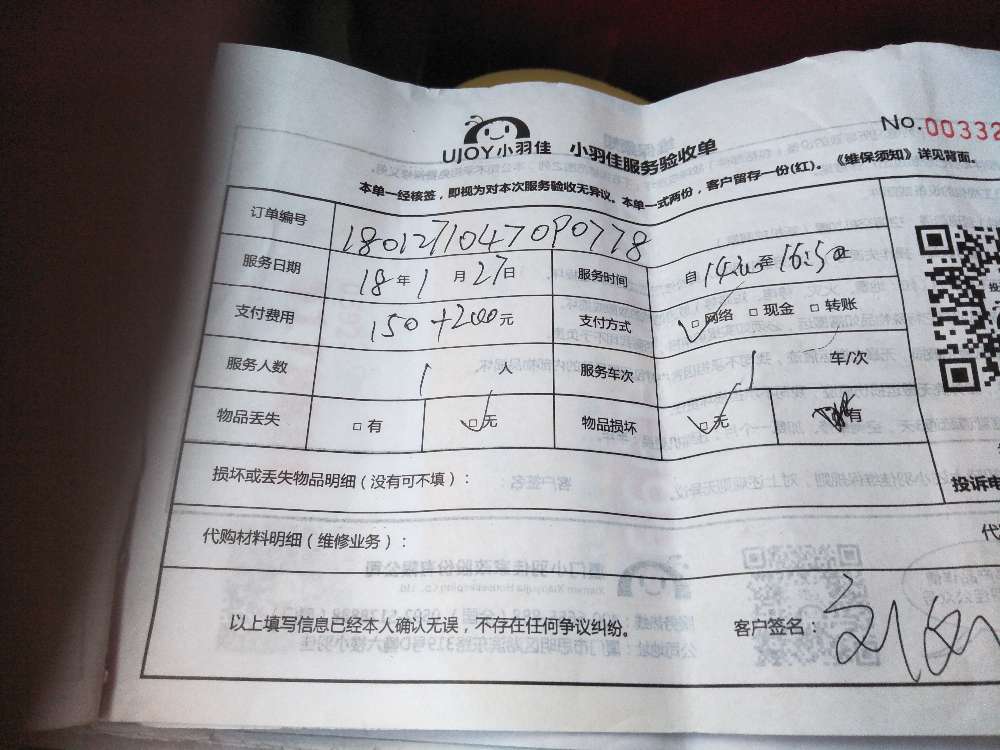 UJOY小羽佳 小羽佳服务验收单 No.00332
本单一经核签，即视为对本次服务验收无异议。本单一式两份，客户留存一份(红)。《维保须知》详见背面。
订单编号 1801271047090778
服务日期 18年1月27日 服务时间 自14:20至16:50止
支付费用 150+2000元 支付方式 □网络 □现金 □转账
服务人数 1人 服务车次 1车/次
物品丢失 □有 □无 物品损坏 □无 有
损坏或丢失物品明细（没有可不填）：
投诉电
代购材料明细（维修业务）：
代
以上填写信息已经本人确认无误，不存在任何争议纠纷。 客户签名：